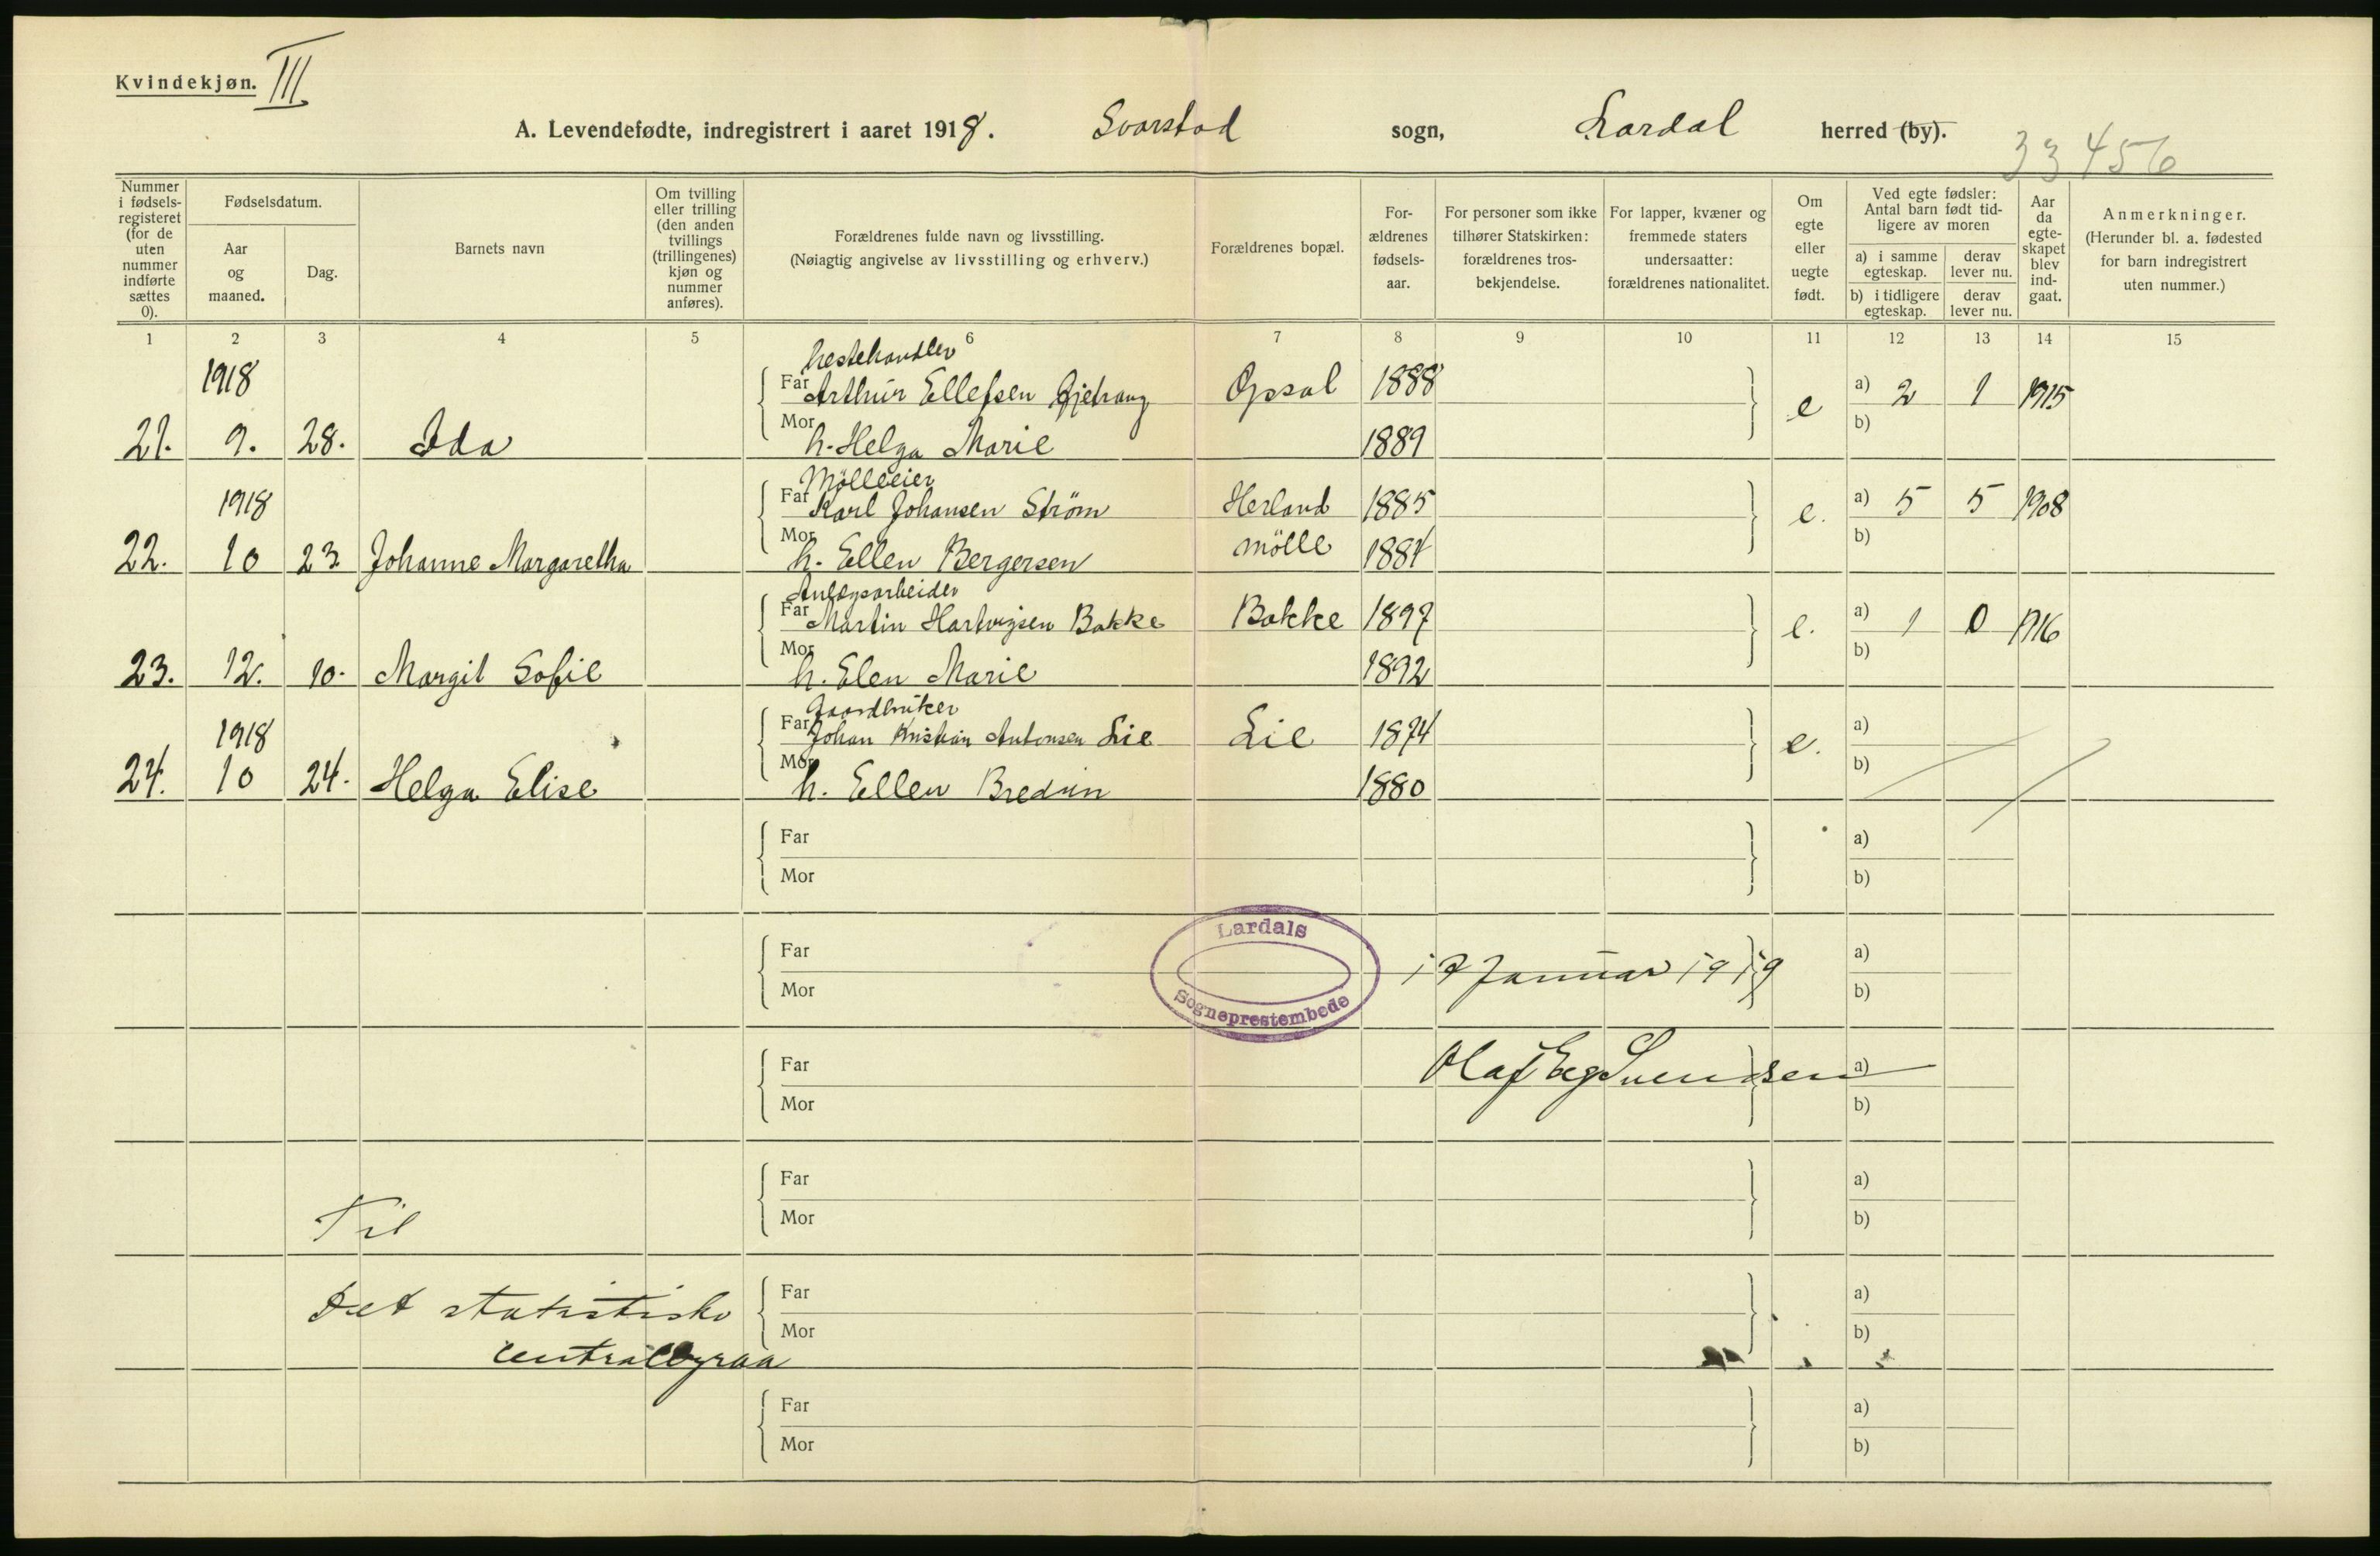 Kvindekjøn. III
A. Levendefødte, indregistrert i aaret 1918. Svarstad sogn, Lardal herred (by).
33456
Nummer i fødsels-registeret (for de uten nummer indførte sættes 0).
Fødselsdatum.
Aar og maaned.
Dag.
Barnets navn
Om tvilling eller trilling (den anden tvillings (trillingenes) kjøn og nummer anføres).
Forældrenes fulde navn og livsstilling.
(Nøiagtig angivelse av livsstilling og erhverv.)
Forældrenes bopæl.
For-ældrenes fødsels-aar.
For personer som ikke tilhører Statskirken: forældrenes tros-bekjendelse.
For lapper, kvæner og fremmede staters undersaatter: forældrenes nationalitet.
Om egte eller uegte født.
Ved egte fødsler: Antal barn født tid-ligere av moren
a) i samme egteskap.
derav lever nu.
b) i tidligere egteskap.
derav lever nu.
Aar da egte-skapet blev ind-gaat.
Anmerkninger.
(Herunder bl. a. fødested for barn indregistrert uten nummer.)
1 2 3 4 5 6 7 8 9 10 11 12 13 14 15
Hestehandler
1918 Far Arthur Ellefsen Opsal 1888 e a) 2 1 1915
21. 9. 28. Ida Mor h. Helga Marie 1889 b)
Mölleeier
1918 Far Karl Johansen Ström Herland 1885 e. a) 5 5 1908
22. 10 23 Johanne Margaretha Mor h. Ellen Bergersen mölle 1884 b)
Anlægsarbeider
Far Martin Hartvigsen Bakke Bakke 1897 e. a) 1 0 1916
23. 12. 10. Margit Sofie Mor h. Elen Marie 1892 b)
Gaardbruker
1918 Far Johan Kristian Antonsen Lie Lie 1874 e. a)
24. 10 24. Helga Elise Mor h. Ellen 1880 b)
Far a)
Mor b)
Lardals Sogneprestembede
Far 17 Januar 1919 a)
Mor b)
Far Olaf Svendsen a)
Mor b)
Far a)
Til Mor b)
Det statistiske Far a)
Mor b)
centralbyraa
Far a)
Mor b)